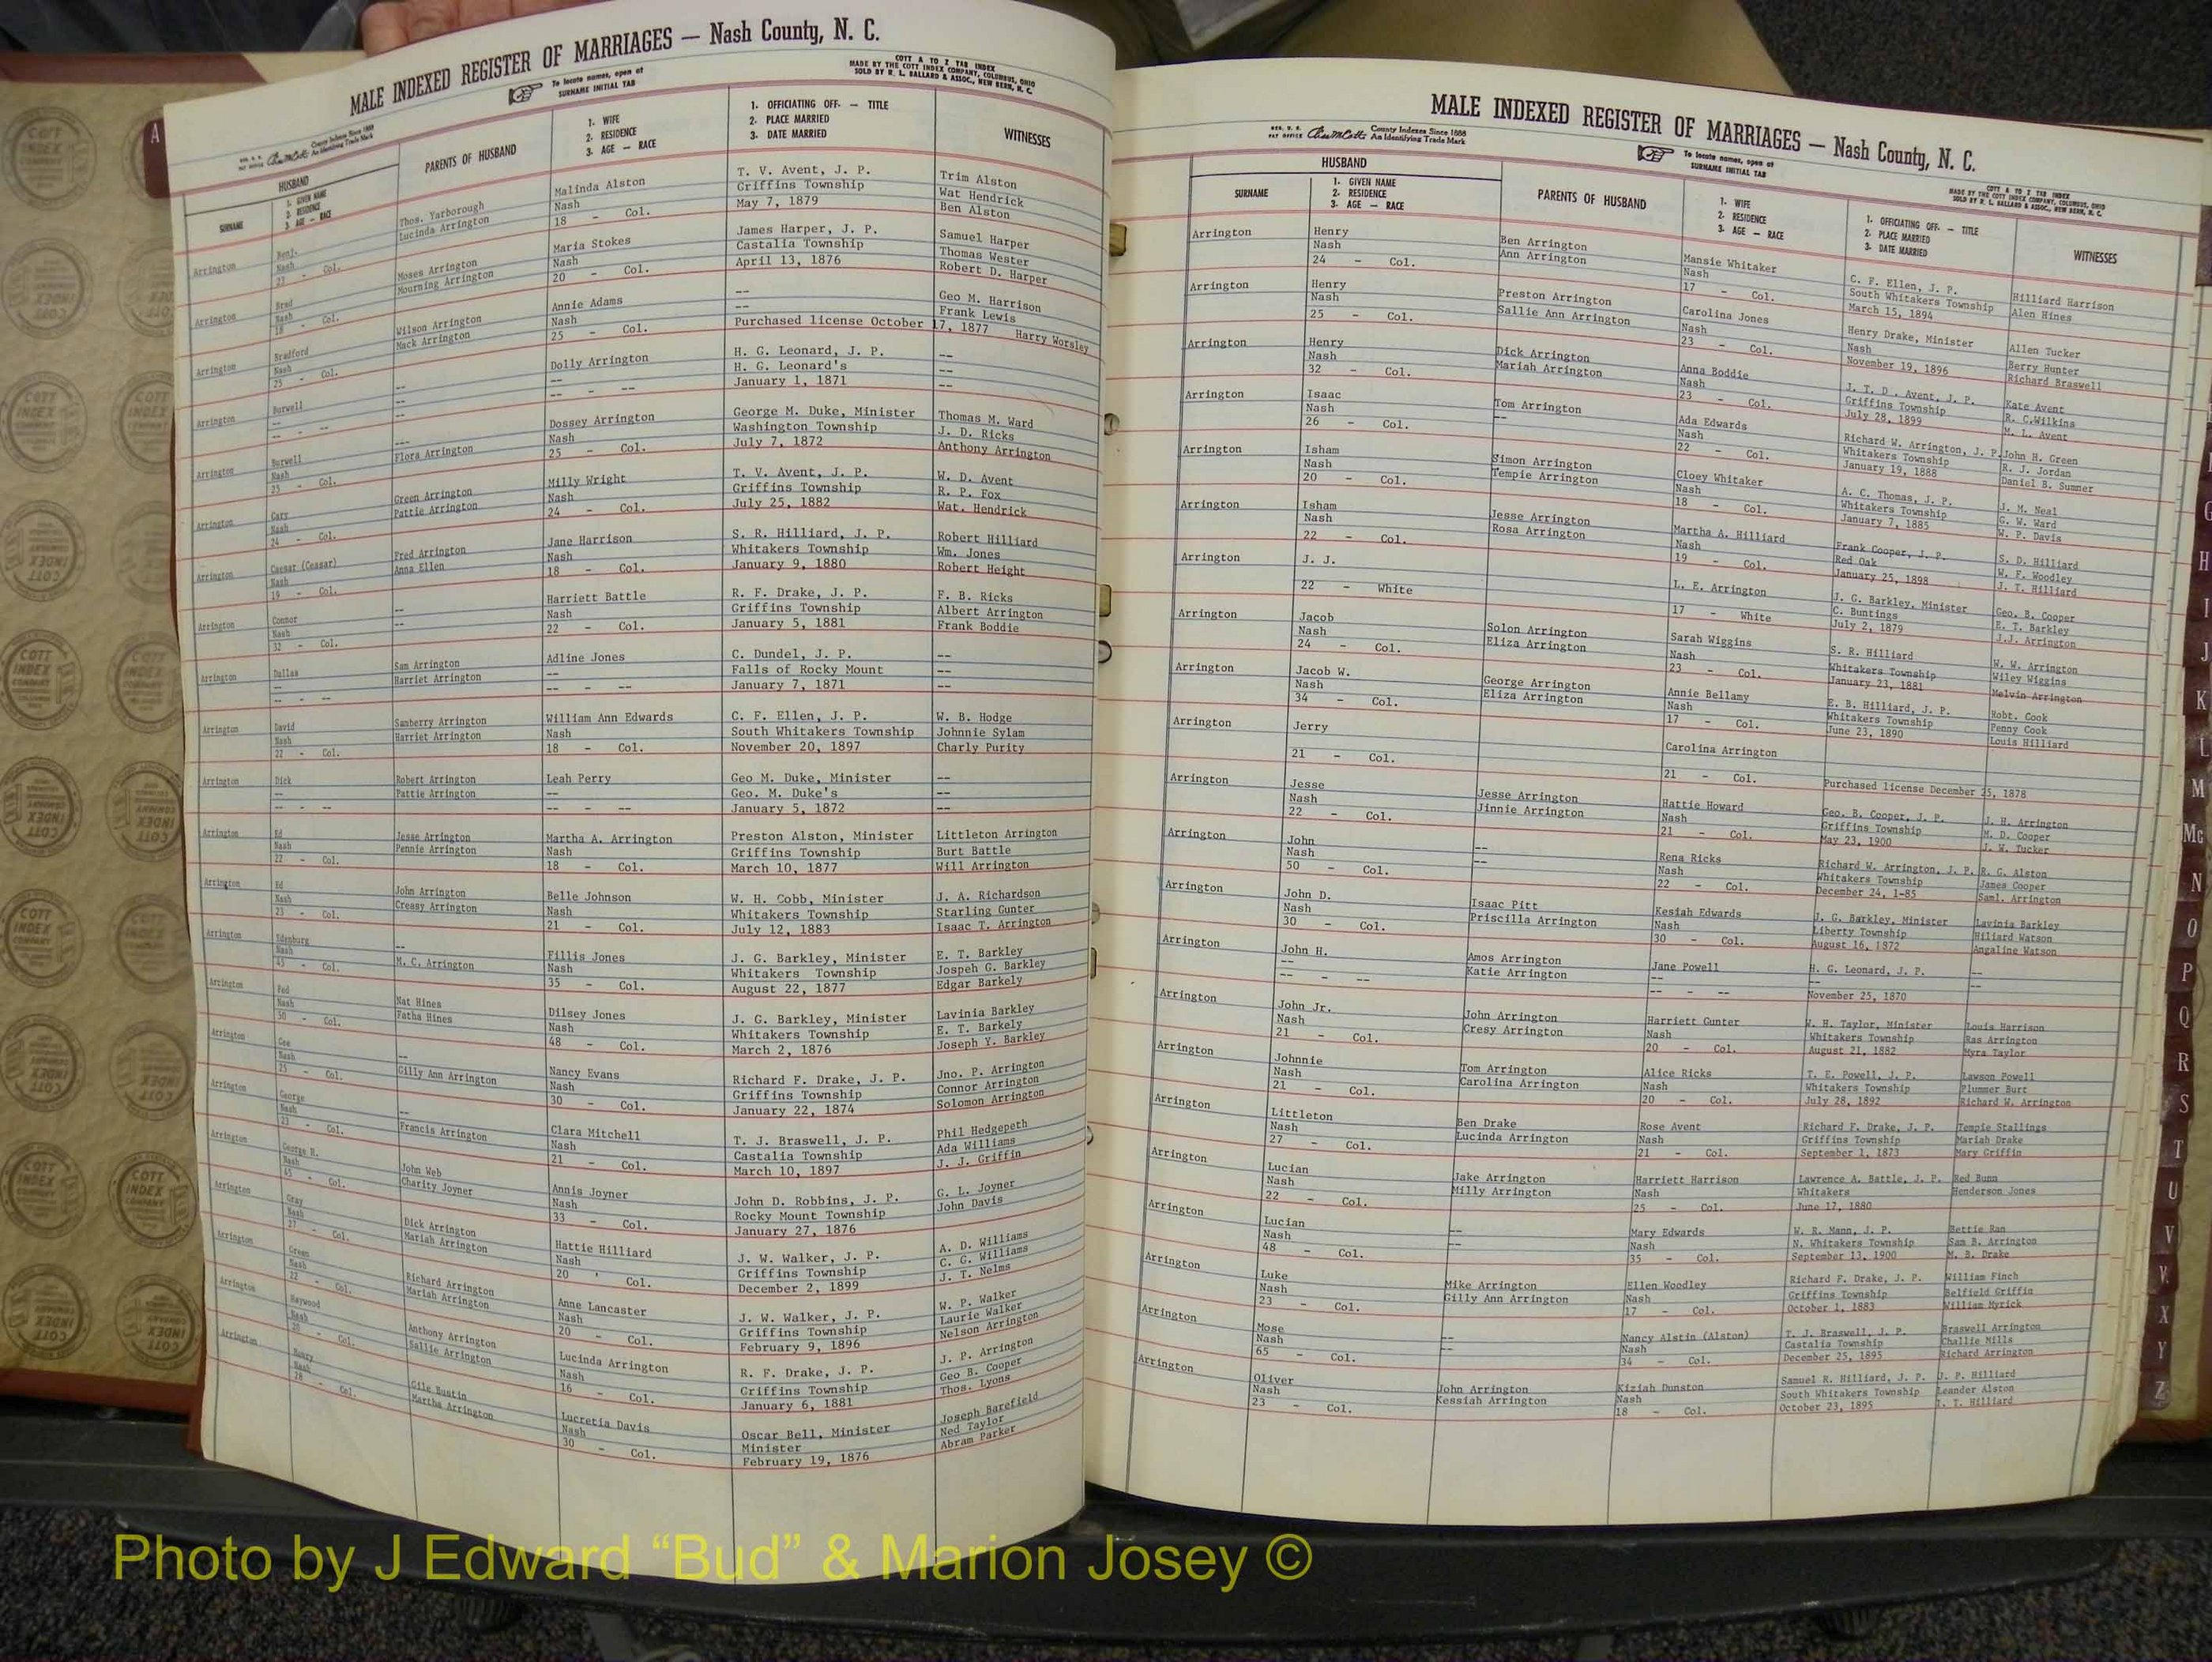 MALE INDEXED REGISTER OF MARRIAGES — Nash County, N. C.
To locate names, open at
SURNAME INITIAL TAB
COTT A TO Z TAB INDEX
MADE BY THE COTT INDEX COMPANY, COLUMBUS, OHIO
SOLD BY R. L. BALLARD & ASSOC., NEW BERN, N. C.
County Indexes Since 1888
An Identifying Trade Mark
HUSBAND
SURNAME
1. GIVEN NAME
2. RESIDENCE
3. AGE — RACE
PARENTS OF HUSBAND
1. WIFE
2. RESIDENCE
3. AGE — RACE
1. OFFICIATING OFF. — TITLE
2. PLACE MARRIED
3. DATE MARRIED
WITNESSES
Arrington Benj. Thos. Yarborough Malinda Alston T. V. Avent, J. P. Trim Alston
Nash Lucinda Arrington Nash Griffins Township Wat Hendrick
27 - Col. 18 - Col. May 7, 1879 Ben Alston
Arrington Brad Moses Arrington Maria Stokes James Harper, J. P. Samuel Harper
Nash Mourning Arrington Nash Castalia Township Thomas Wester
18 - Col. 20 - Col. April 13, 1876 Robert D. Harper
Arrington Bradford Wilson Arrington Annie Adams -- Geo M. Harrison
Nash Mack Arrington Nash -- Frank Lewis
25 - Col. 25 - Col. Purchased license October 17, 1877 Harry Worsley
Arrington Burwell -- Dolly Arrington H. G. Leonard, J. P. --
-- -- -- H. G. Leonard's --
-- - -- -- - -- January 1, 1871 --
Arrington Burwell --- Dossey Arrington George M. Duke, Minister Thomas M. Ward
Nash Flora Arrington Nash Washington Township J. D. Ricks
25 - Col. 25 - Col. July 7, 1872 Anthony Arrington
Arrington Cary Green Arrington Milly Wright T. V. Avent, J. P. W. D. Avent
Nash Pattie Arrington Nash Griffins Township R. P. Fox
24 - Col. 24 - Col. July 25, 1882 Wat. Hendrick
Arrington Caesar (Ceasar) Fred Arrington Jane Harrison S. R. Hilliard, J. P. Robert Hilliard
Nash Anna Ellen Nash Whitakers Township Wm. Jones
19 - Col. 18 - Col. January 9, 1880 Robert Height
Arrington Connor -- Harriett Battle R. F. Drake, J. P. F. B. Ricks
Nash -- Nash Griffins Township Albert Arrington
32 - Col. 22 - Col. January 5, 1881 Frank Boddie
Arrington Dallas Sam Arrington Adline Jones C. Dundel, J. P. --
-- Harriet Arrington -- Falls of Rocky Mount --
-- - -- -- - -- January 7, 1871 --
Arrington David Samberry Arrington William Ann Edwards C. F. Ellen, J. P. W. B. Hodge
Nash Harriet Arrington Nash South Whitakers Township Johnnie Sylam
22 - Col. 18 - Col. November 20, 1897 Charly Purity
Arrington Dick Robert Arrington Leah Perry Geo M. Duke, Minister --
-- Pattie Arrington -- Geo. M. Duke's --
-- - -- -- - -- January 5, 1872 --
Arrington Ed Jesse Arrington Martha A. Arrington Preston Alston, Minister Littleton Arrington
Nash Pennie Arrington Nash Griffins Township Burt Battle
22 - Col. 18 - Col. March 10, 1877 Will Arrington
Arrington Ed John Arrington Belle Johnson W. H. Cobb, Minister J. A. Richardson
Nash Creasy Arrington Nash Whitakers Township Starling Gunter
23 - Col. 21 - Col. July 12, 1883 Isaac T. Arrington
Arrington Edenburg -- Fillis Jones J. G. Barkley, Minister E. T. Barkley
Nash M. C. Arrington Nash Whitakers Township Jospeh G. Barkley
45 - Col. 35 - Col. August 22, 1877 Edgar Barkely
Arrington Fed Nat Hines Dilsey Jones J. G. Barkley, Minister Lavinia Barkley
Nash Fatha Hines Nash Whitakers Township E. T. Barkely
50 - Col. 48 - Col. March 2, 1876 Joseph Y. Barkley
Arrington Gee -- Nancy Evans Richard F. Drake, J. P. Jno. P. Arrington
Nash Gilly Ann Arrington Nash Griffins Township Connor Arrington
25 - Col. 30 - Col. January 22, 1874 Solomon Arrington
Arrington George -- Clara Mitchell T. J. Braswell, J. P. Phil Hedgepeth
Nash Francis Arrington Nash Castalia Township Ada Williams
23 - Col. 21 - Col. March 10, 1897 J. J. Griffin
Arrington George H. John Web Annis Joyner John D. Robbins, J. P. G. L. Joyner
Nash Charity Joyner Nash Rocky Mount Township John Davis
45 - Col. 33 - Col. January 27, 1876
Arrington Gray Dick Arrington Hattie Hilliard J. W. Walker, J. P. A. D. Williams
Nash Mariah Arrington Nash Griffins Township C. G. Williams
27 Col. 20 ' Col. December 2, 1899 J. T. Nelms
Arrington Green Richard Arrington Anne Lancaster J. W. Walker, J. P. W. P. Walker
Nash Mariah Arrington Nash Griffins Township Laurie Walker
22 - Col. 20 - Col. February 9, 1896 Nelson Arrington
Arrington Haywood Anthony Arrington Lucinda Arrington R. F. Drake, J. P. J. P. Arrington
Nash Sallie Arrington Nash Griffins Township Geo B. Cooper
20 - Col. 16 - Col. January 6, 1881 Thos. Lyons
Arrington Henry Gile Bustin Lucretia Davis Oscar Bell, Minister Joseph Barefield
Nash Martha Arrington Nash Minister Ned Taylor
28 - Col. 30 - Col. February 19, 1876 Abram Parker
MALE INDEXED REGISTER OF MARRIAGES — Nash County, N. C.
County Indexes Since 1888
An Identifying Trade Mark
To locate names, open at
SURNAME INITIAL TAB
COTT A TO Z TAB INDEX
MADE BY THE COTT INDEX COMPANY, COLUMBUS, OHIO
SOLD BY R. L. BALLARD & ASSOC., NEW BERN, N. C.
HUSBAND
SURNAME
1. GIVEN NAME
2. RESIDENCE
3. AGE — RACE
PARENTS OF HUSBAND
1. WIFE
2. RESIDENCE
3. AGE — RACE
1. OFFICIATING OFF. — TITLE
2. PLACE MARRIED
3. DATE MARRIED
WITNESSES
Arrington Henry Ben Arrington Mansie Whitaker C. F. Ellen, J. P. Hilliard Harrison
Nash Ann Arrington Nash South Whitakers Township Alen Hines
24 - Col. 17 - Col. March 15, 1894
Arrington Henry Preston Arrington Carolina Jones Henry Drake, Minister Allen Tucker
Nash Sallie Ann Arrington Nash Nash Berry Hunter
25 - Col. 23 - Col. November 19, 1896 Richard Braswell
Arrington Henry Dick Arrington Anna Boddie J. T. D. Avent, J. P. Kate Avent
Nash Mariah Arrington Nash Griffins Township R. C.Wilkins
32 - Col. 23 - Col. July 28, 1899 M. L. Avent
Arrington Isaac Tom Arrington Ada Edwards Richard W. Arrington, J. P. John H. Green
Nash -- Nash Whitakers Township R. J. Jordan
26 - Col. 22 - Col. January 19, 1888 Daniel B. Sumner
Arrington Isham Simon Arrington Cloey Whitaker A. C. Thomas, J. P. J. M. Neal
Nash Tempie Arrington Nash Whitakers Township G. W. Ward
20 - Col. 18 - Col. January 7, 1885 W. P. Davis
Arrington Isham Jesse Arrington Martha A. Hilliard Frank Cooper, J. P. S. D. Hilliard
Nash Rosa Arrington Nash Red Oak W. F. Woodley
22 - Col. 19 - Col. January 25, 1898 J. T. Hilliard
Arrington J. J. L. E. Arrington J. G. Barkley, Minister Geo. B. Cooper
C. Buntings E. T. Barkley
22 - White 17 - White July 2, 1879 J.J. Arrington
Arrington Jacob Solon Arrington Sarah Wiggins S. R. Hilliard W. W. Arrington
Nash Eliza Arrington Nash Whitakers Township Wiley Wiggins
24 - Col. 23 - Col. January 23, 1881 Melvin Arrington
Arrington Jacob W. George Arrington Annie Bellamy E. B. Hilliard, J. P. Robt. Cook
Nash Eliza Arrington Nash Whitakers Township Penny Cook
34 - Col. 17 - Col. June 23, 1890 Louis Hilliard
Arrington Jerry Carolina Arrington
21 - Col. 21 - Col. Purchased license December 25, 1878
Arrington Jesse Jesse Arrington Hattie Howard Geo. B. Cooper, J. P. J. H. Arrington
Nash Jinnie Arrington Nash Griffins Township M. D. Cooper
22 - Col. 21 - Col. May 23, 1900 J. W. Tucker
Arrington John -- Rena Ricks Richard W. Arrington, J. P. R. G. Alston
Nash -- Nash Whitakers Township James Cooper
50 - Col. 22 - Col. December 24, 1-85 Saml. Arrington
Arrington John D. Isaac Pitt Kesiah Edwards J. G. Barkley, Minister Lavinia Barkley
Nash Priscilla Arrington Nash Liberty Township Hiliard Watson
30 - Col. 30 - Col. August 16, 1872 Angaline Watson
Arrington John H. Amos Arrington Jane Powell H. G. Leonard, J. P. --
-- Katie Arrington -- -- --
-- - -- -- - -- November 25, 1870
Arrington John Jr. John Arrington Harriett Gunter W. H. Taylor, Minister Louis Harrison
Nash Cresy Arrington Nash Whitakers Township Ras Arrington
21 - Col. 20 - Col. August 21, 1882 Myra Taylor
Arrington Johnnie Tom Arrington Alice Ricks T. E. Powell, J. P. Lawson Powell
Nash Carolina Arrington Nash Whitakers Township Plummer Burt
21 - Col. 20 - Col. July 28, 1892 Richard W. Arrington
Arrington Littleton Ben Drake Rose Avent Richard F. Drake, J. P. Tempie Stallings
Nash Lucinda Arrington Nash Griffins Township Mariah Drake
27 - Col. 21 - Col. September 1, 1873 Mary Griffin
Arrington Lucian Jake Arrington Harriett Harrison Lawrence A. Battle, J. P. Red Bunn
Nash Milly Arrington Nash Whitakers Henderson Jones
22 - Col. 25 - Col. June 17, 1880
Arrington Lucian -- Mary Edwards W. R. Mann, J. P. Bettie Ran
Nash -- Nash N. Whitakers Township Sam B. Arrington
48 - Col. 35 - Col. September 13, 1900 M. B. Drake
Arrington Luke Mike Arrington Ellen Woodley Richard F. Drake, J. P. William Finch
Nash Gilly Ann Arrington Nash Griffins Township Belfield Griffin
23 - Col. 17 - Col. October 1, 1883 William Myrick
Arrington Mose -- Nancy Alstin (Alston) T. J. Braswell, J. P. Braswell Arrington
Nash -- Nash Castalia Township Challie Mills
65 - Col. 34 - Col. December 25, 1895 Richard Arrington
Arrington Oliver John Arrington Kiziah Dunston Samuel R. Hilliard, J. P. J. P. Hilliard
Nash Kessiah Arrington Nash South Whitakers Township Leander Alston
23 - Col. 18 - Col. October 23, 1895 I. T. Hilliard
A
G
H
I
J
K
L
M
Mc
N
O
P
Q
R
S
T
U
V
W
X
Y
Z
COTT
INDEX
COMPANY
Photo by J Edward “Bud” & Marion Josey ©